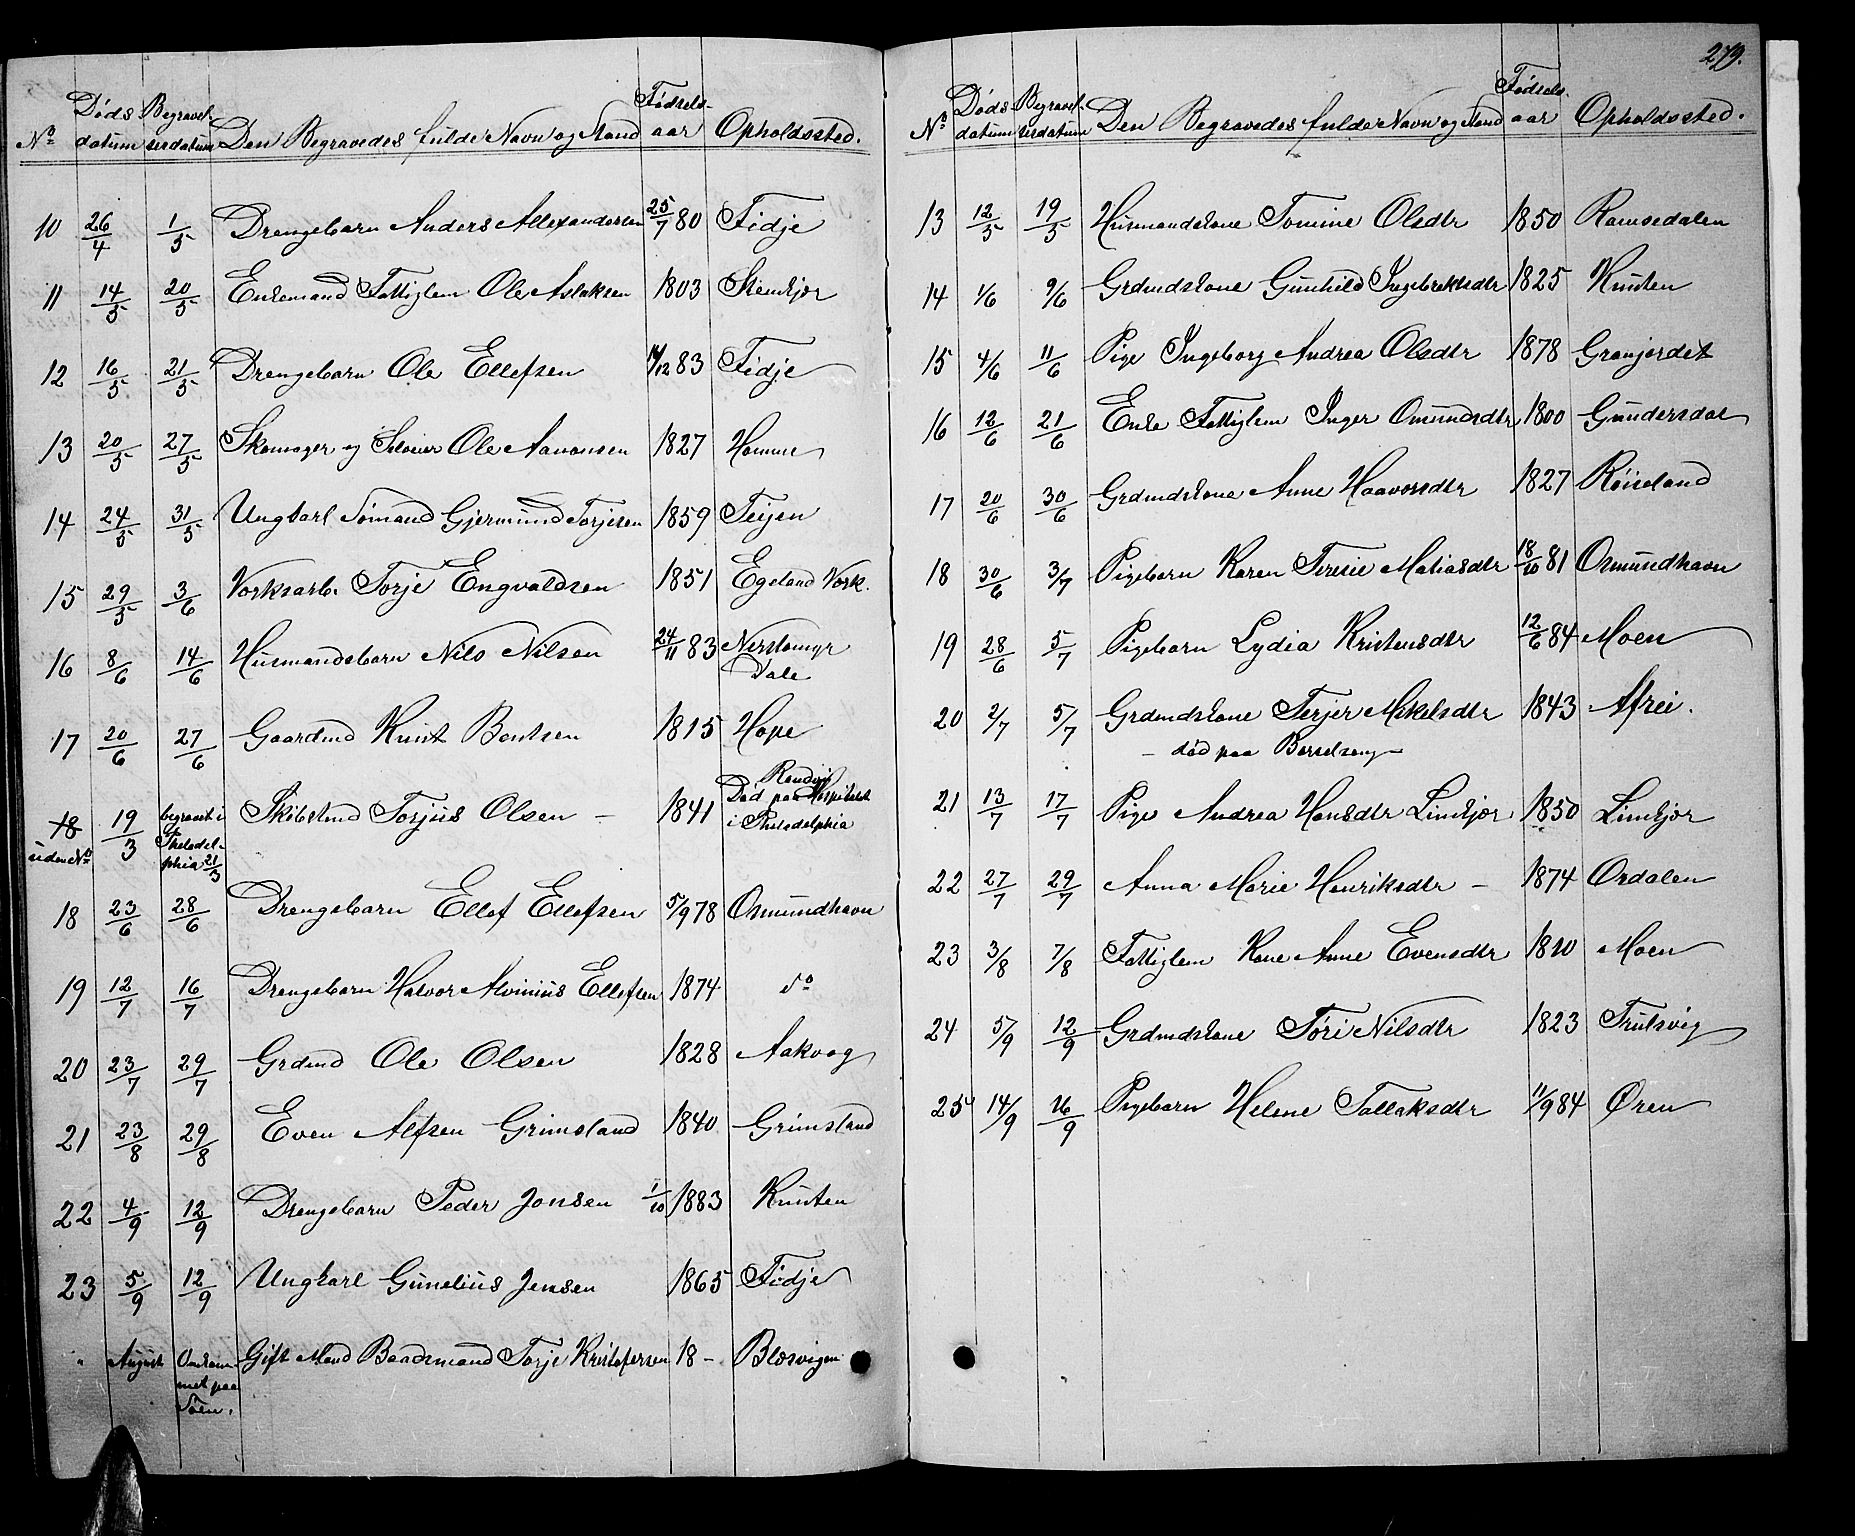 279.
No Døds- datum Begravel- sesdatum Den Begravedes fulde Navn og Stand Fødsels- aar Opholdssted.
10 26/4 1/5 Drengebarn Anders Allexandersen 25/7 80 Fidje
11 14/5 20/5 Enkemand Fattiglem Ole Aslaksen 1803 Stenkjør
12 16/5 21/5 Drengebarn Ole Ellefsen 14/12 83 Fidje
13 20/5 27/5 Skomager og Ole Aavansen 1827 Homme
14 24/5 31/5 Ungkarl Sømand Gjermund Torjesen 1859 Teijen
15 29/5 3/6 Verksarb. Torje Engvaldsen 1851 Egeland Verk.
16 8/6 14/6 Husmandsbarn Nils Nilsen 24/11 83 Nerstemyr
Dale
17 20/6 27/6 Gaardmd Knut Bentsen 1815 Hope
18 uden No 19/3 begravet i Philadel- phia 21/3 Skibstmd Torjus Olsen – 1841 Død paa Hospitalet
i Philadelphia
18 23/6 28/6 Drengebarn Ellef Ellefsen 5/9 78 Osmundhavn
19 12/7 16/7 Drengebarn Halvor Alvinius Ellefsen 1874 do
20 23/7 29/7 Grdmd Ole Olsen 1828 Aakvag
21 23/8 29/8 Even Alfsen Grimsland 1840 Grimsland
22 4/9 12/9 Drengebarn Peder Jonsen 1/10 1883 Knuten
23 5/9 12/9 Ungkarl Gunelius Jensen 1865 Fidje
" August Omkom- met paa Søen. Gift Mand Baadsmand Torje Kristofersen 18 – Blosvigen
No Døds- datum Begravel- sesdatum Den Begravedes fulde Navn og Stand Fødsels- aar Opholdssted.
13 12/5 19/5 Husmandskone Tomine Olsdtr 1850 Ramsedalen
14 1/6 9/6 Grdmdskone Gunhild Ingebrektsdtr 1825 Knuten
15 4/6 11/6 Pige Ingeborg Andrea Olsdtr 1878 Granjordet
16 12/6 21/6 Enke Fattiglem Inger Omundsdtr 1800 Gundersdal
17 20/6 30/6 Grdmdskone Anne Haavorsdtr 1827 Röiseland
18 30/6 3/7 Pigebarn Karen Teresie Matiasdtr 18/10 81 Osmundhavn
19 28/6 5/7 Pigebarn Lydia Kristensdtr 12/6 84 Moen
20 2/7 5/7 Grdmdskone Terjer Mikelsdtr 1843 Afrei.
– død paa Berrelseng –
21 13/7 17/7 Pige Andrea Hansdtr Limkjær 1850 Limkjær
22 27/7 29/7 Anna Marie Henriksdtr – 1874 Ordalen
23 3/8 7/8 Fattiglem Kone Anne Evensdtr 1810 Moen
24 5/9 12/9 Grdmdskone Töri Nilsdtr 1823 Trulsvig
25 14/9 16/9 Pigebarn Helene Tallaksdtr 11/9 84 Øren